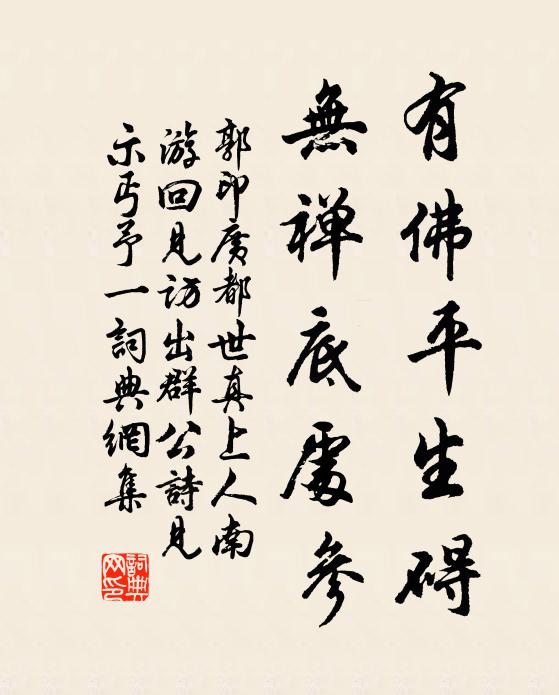 有佛平生碍
無禅底處參
郭印廣都世真上人南
游回見访出群公詩見
示丐予一詞典網集
詞典
网印